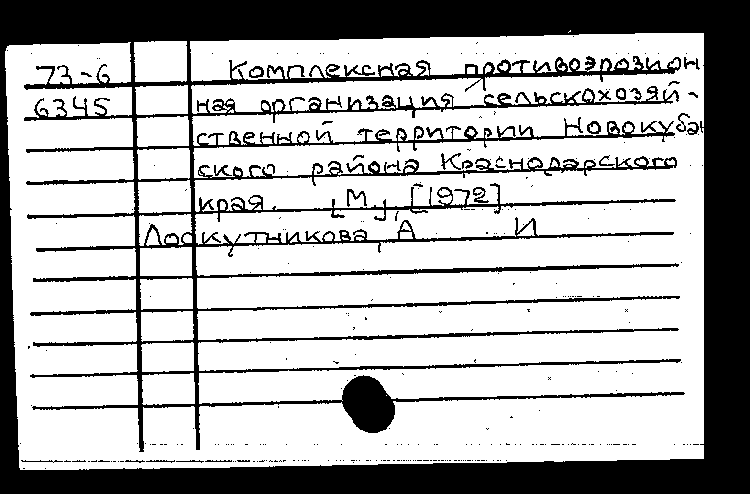 73-6 Комплексная противоэрозион
6345 ная организация сельскохозяй-
ственной территории Новокубан
ского района Краснодарского
края. [М], [1972]
Лоскутникова, А И